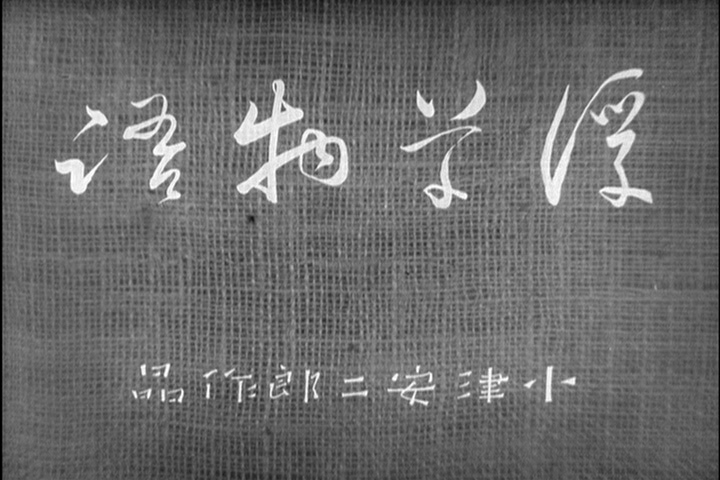 浮草物語
小津安二郎作品